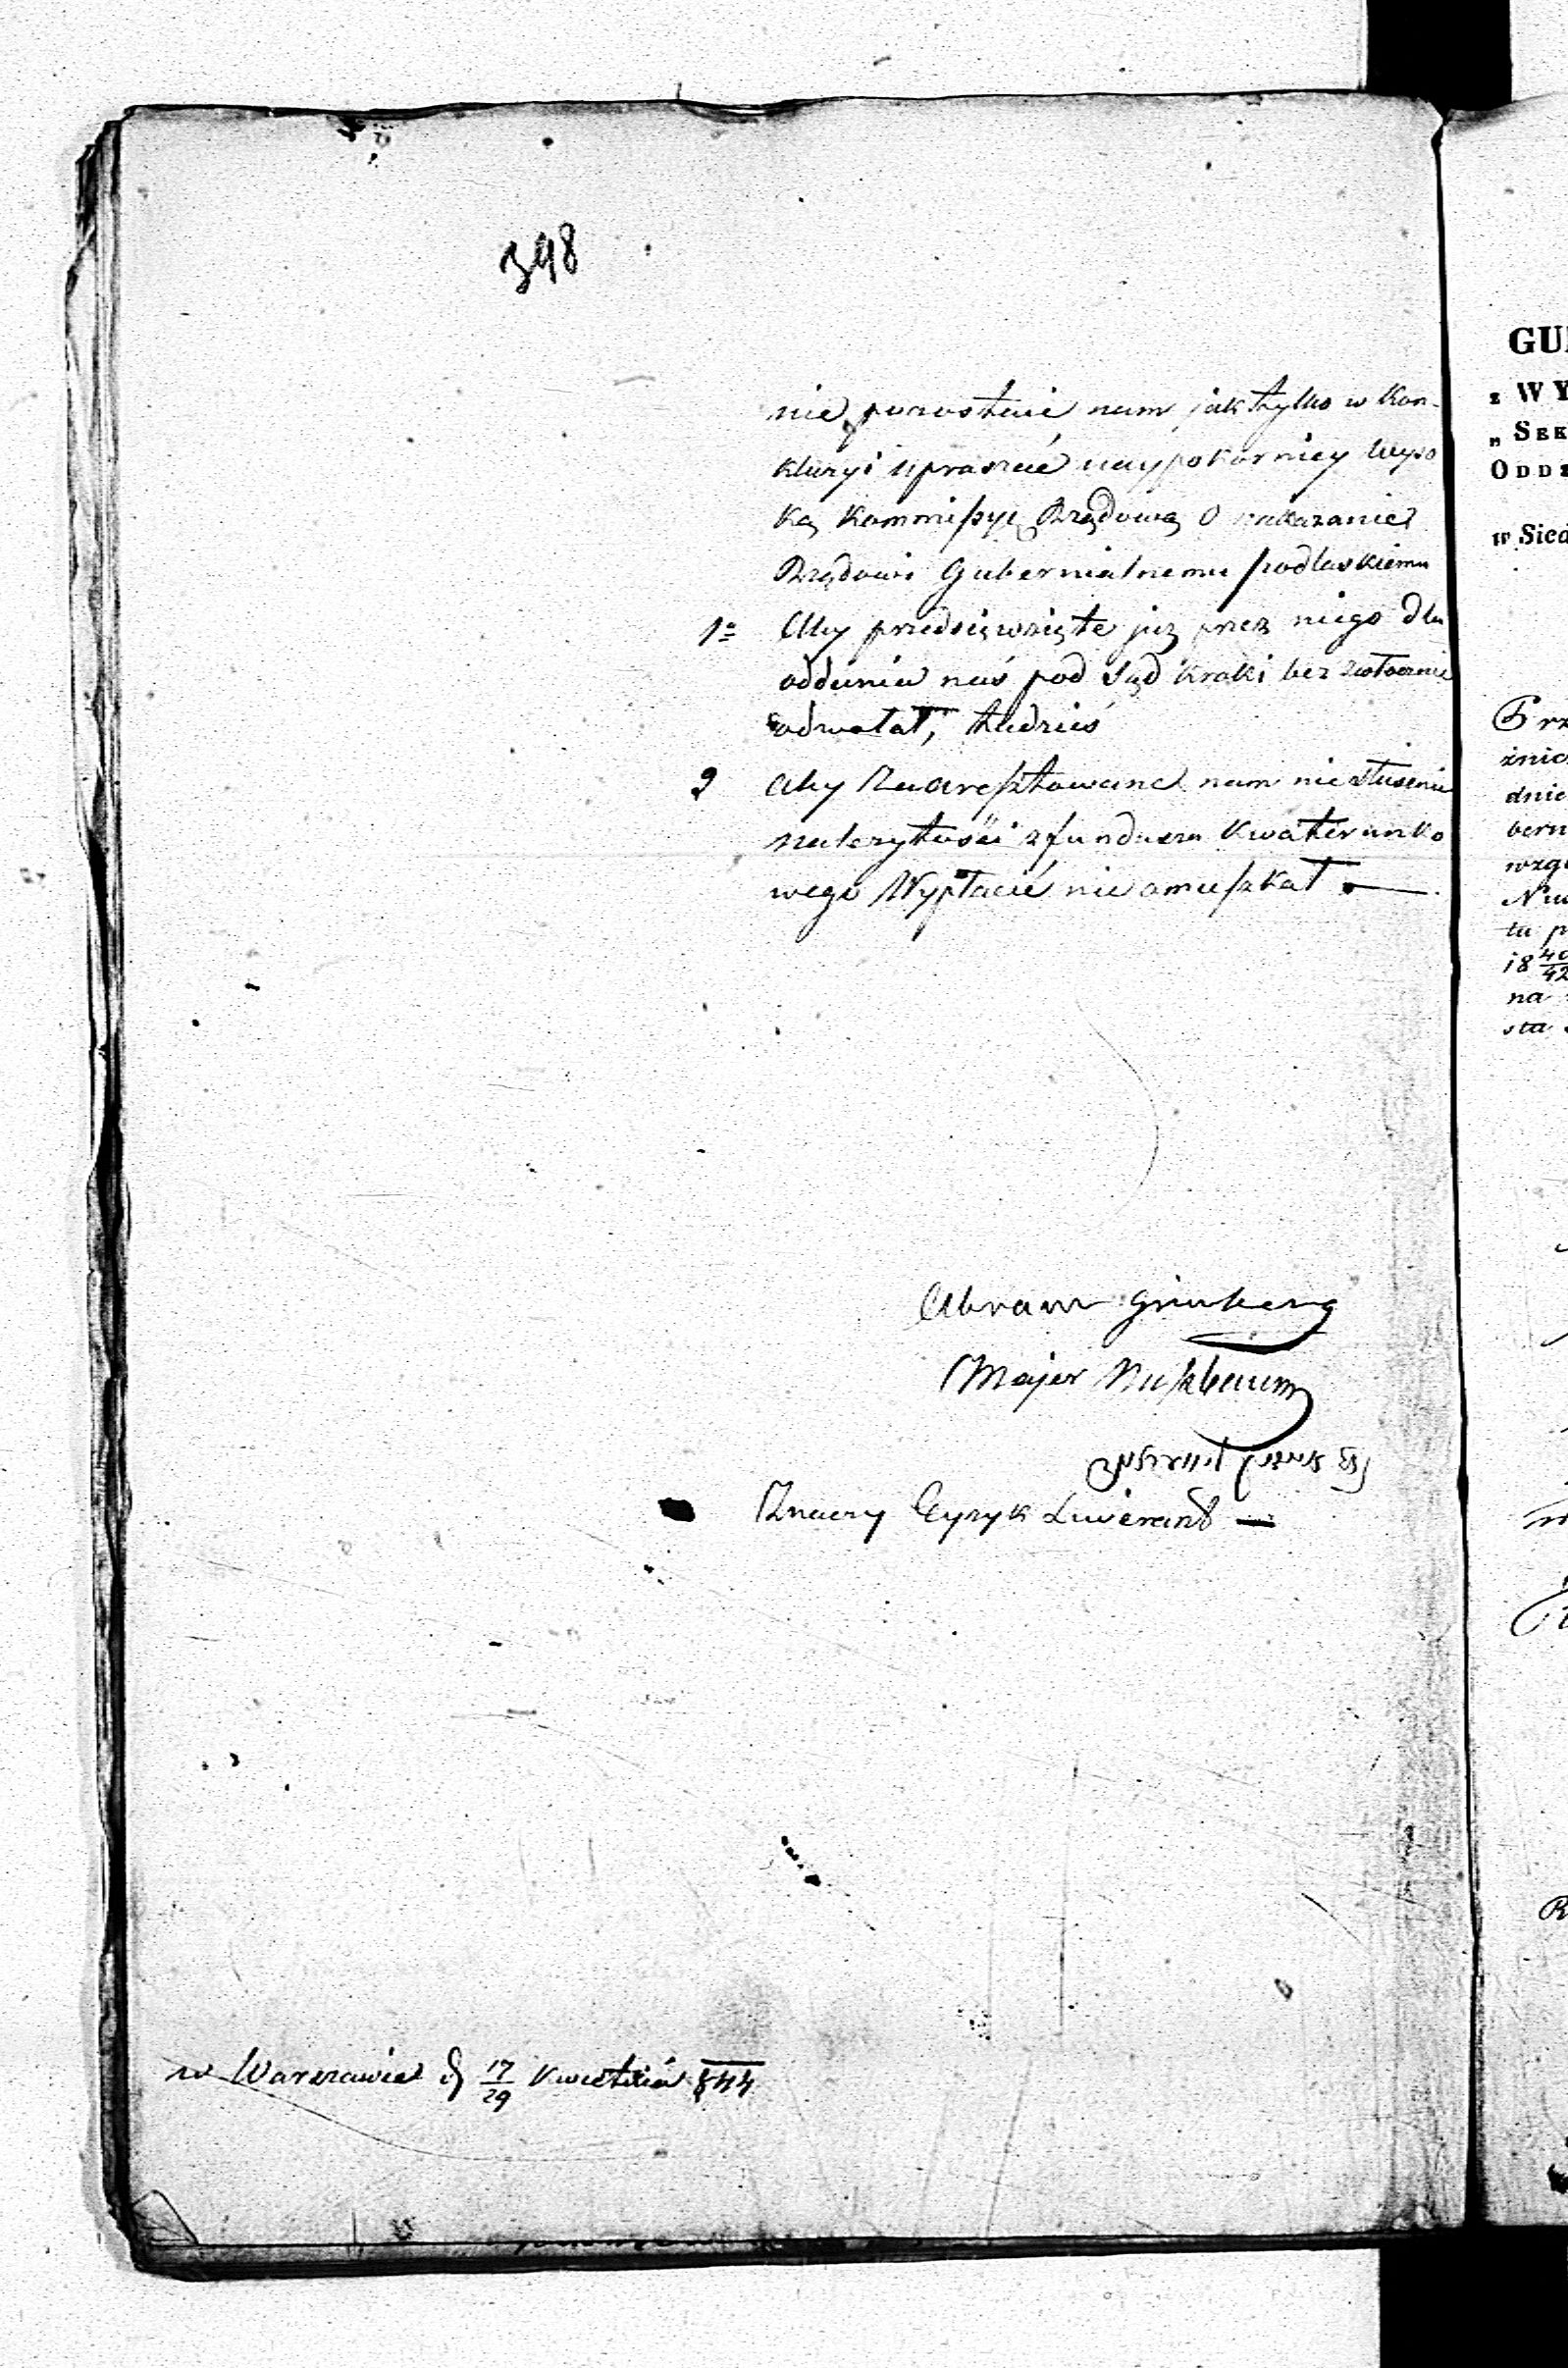 398
nie pozostaie nam jak tylko w kon-
kluzyi upraszać naypokorniey wyso
ką Kommissyę Rządową o nakazanie
Rządowi Gubernialnemu podlaskiemu
1o Aby przedsięwzięte już przez niego dla
oddania nas pod Sąd kroki bez zwłocznie
odwołał, tudzież
2 aby Zaaresztowane nam nie słusznie
należytości z funduszu kwaterunko
wego Wypłacić nie omieszkał
Abram Grinberg
Majer Nuszbaum
Znaczy Eyzyk Liwerand
w Warszawie d 17/29 Kwietnia 844
GU
z WY
„ SEK
ODD
w Sied
Prz
żnic
dnie
bern
wzgl
ta p
18 40/42
na
sta